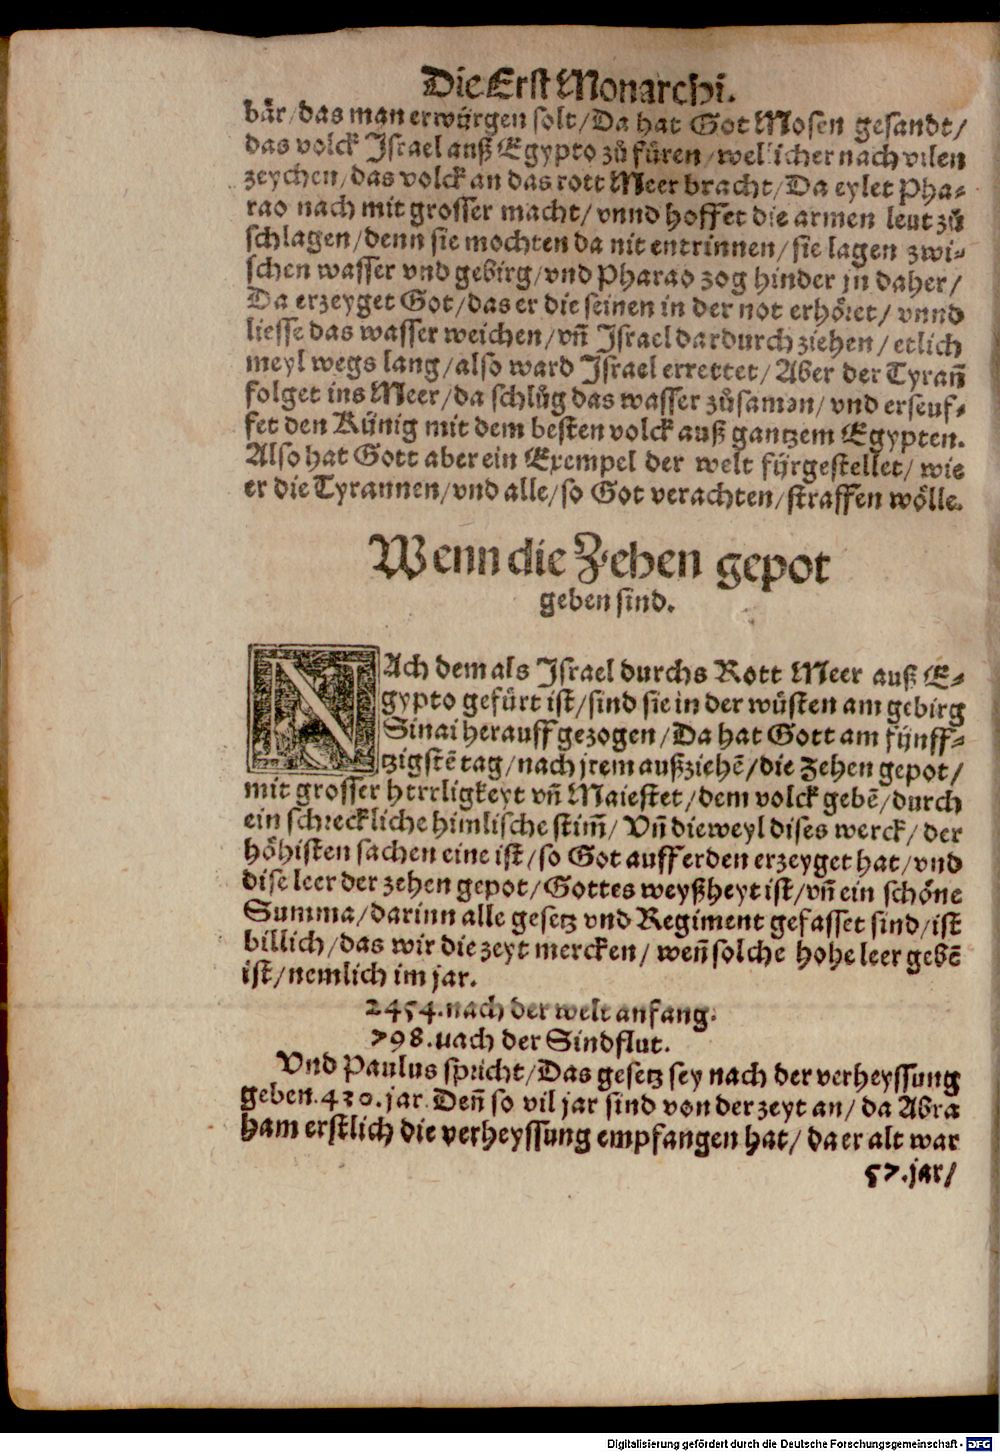 Die Erst Monarchi.
bår/das man erwürgen solt/Da hat Got Mosen gesandt/
das volck Israel auß Egypto zů füren/wellicher nach vilen
zeychen/das volck an das rott Meer bracht/Da eylet Pha-
rao nach mit grosser macht/vnnd hoffet die armen leut zů
schlagen/denn sie mochten da nit entrinnen/sie lagen zwi-
schen wasser vnd gebirg/vnd Pharao zog hinder jn daher/
Da erzeyget Got/das er die seinen in der not erhöret/vnnd
liesse das wasser weichen/vñ Israel dardurch ziehen/etlich
meyl wegs lang/also ward Israel errettet/Aber der Tyrañ
folget ins Meer/da schlůg das wasser zůsamen/vnd erseuf-
fet den Künig mit dem besten volck auß gantzem Egypten.
Also hat Gott aber ein Exempel der welt fürgestellet/wie
er die Tyrannen/vnd alle/so Got verachten/straffen wölle.
Wenn die Zehen gepot
geben sind.
NAch dem als Israel durchs Rott Meer auß E-
gypto gefürt ist/sind sie in der wüsten am gebirg
Sinai herauff gezogen/Da hat Gott am fünff-
tzigstē tag/nach jrem außziehē/die Zehen gepot/
mit grosser herrligkeyt vñ Maiestet/dem volck gebē/durch
ein schreckliche himlische stim̃/Vñ dieweyl dises werck/der
höhisten sachen eine ist/so Got auff erden erzeyget hat/vnd
dise leer der zehen gepot/Gottes weyßheyt ist/vñ ein schöne
Summa/darinn alle gesetz vnd Regiment gefasset sind/ist
billich/das wir die zeyt mercken/weñ solche hohe leer gebē
ist/nemlich im jar.
2454.nach der welt anfang.
798.nach der Sindflut.
Vnd Paulus spricht/Das gesetz sey nach der verheyssung
geben.430.jar.Deñ so vil jar sind von der zeyt an/da Abra
ham erstlich die verheyssung empfangen hat/da er alt war
57.jar/
Digitalisierung gefördert durch die Deutsche Forschungsgemeinschaft - DFG